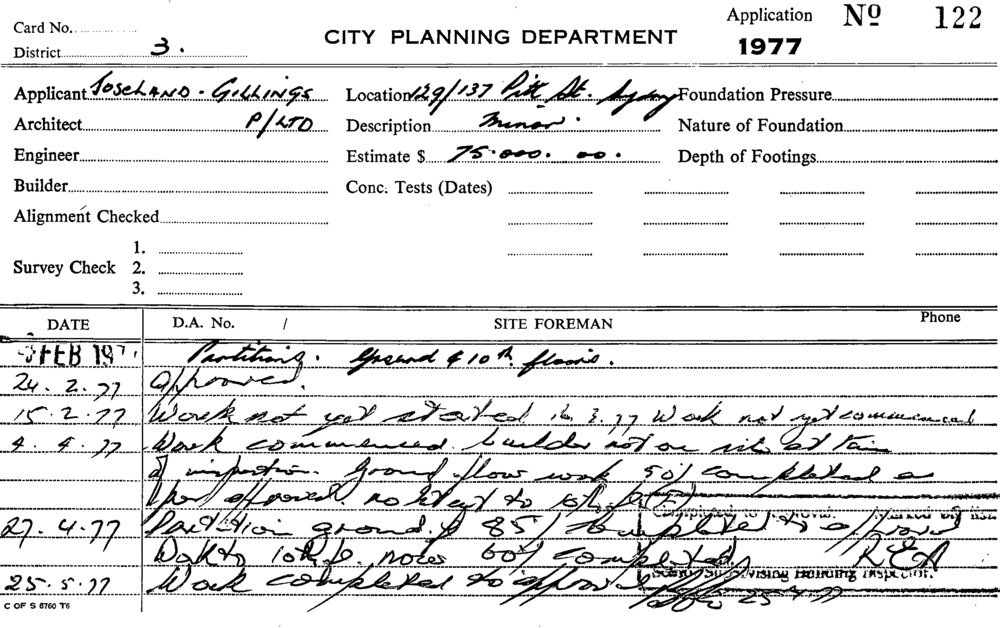 Card No. Application Nº 122
District 3. CITY PLANNING DEPARTMENT 1977
Applicant Joseland - Gillings Location 129/137 Pitt St. Sydney Foundation Pressure
Architect P/LTD Description Minor. Nature of Foundation
Engineer Estimate $ 75.000. 00. Depth of Footings
Builder Conc. Tests (Dates)
Alignment Checked
1.
Survey Check 2.
3.
DATE D.A. No. / SITE FOREMAN Phone
FEB 197 Partitions. Ground & 10th floors.
24.2.77 Approved.
15.2.77 Work not yet started 16.3.77 Work not yet commenced
4.4.77 Work commenced. builder not on site at
of inspection. Ground floor work 50% completed as
per approved. to 10th
27.4.77 Partition ground 85% completed to approved
Work to 10th notes 60% completed. R
25.5.77 Work completed to approval
Completed to Approval. Marked off list
Senior Supervising Building Inspector.
C OF S 6760 T6